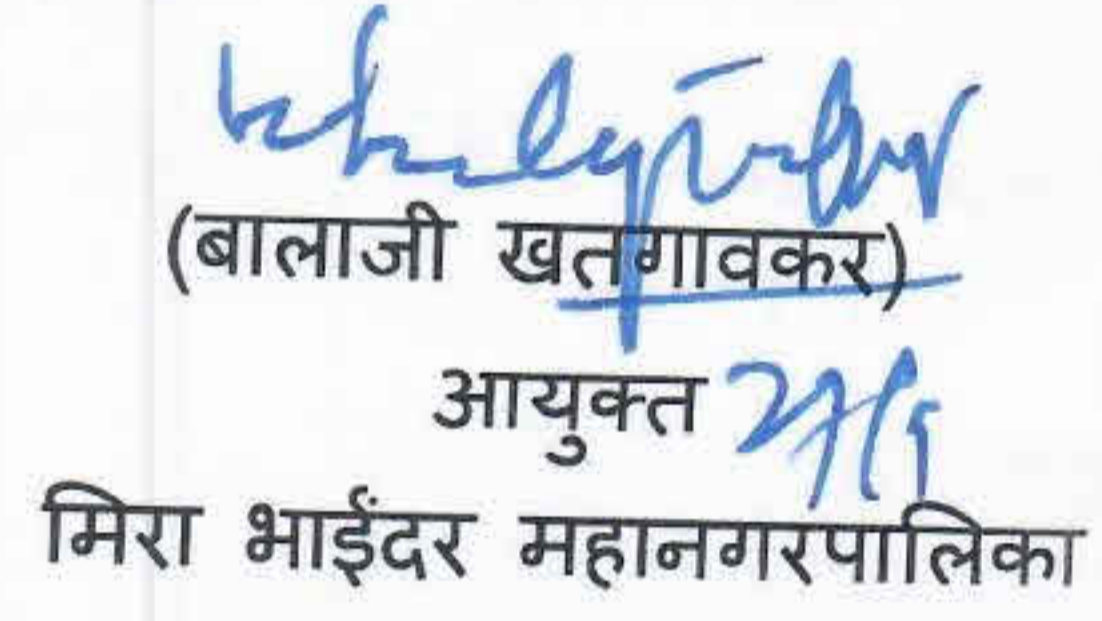 (बालाजी खतगावकर)
आयुक्त
मिरा भाईंदर महानगरपालिका